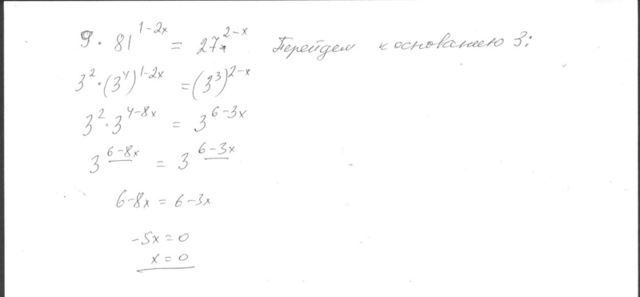 9 · 81^{1-2x} = 27^{2-x} Перейдем к основанию 3:
3^2 · (3^4)^{1-2x} = (3^3)^{2-x}
3^2 · 3^{4-8x} = 3^{6-3x}
3^{6-8x} = 3^{6-3x}
6-8x = 6-3x
-5x = 0
x = 0